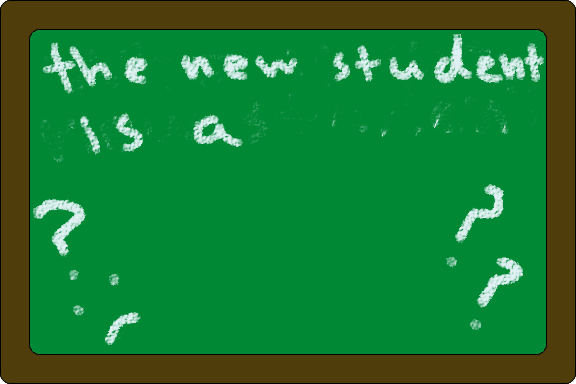 the new student
is a
?
?
?